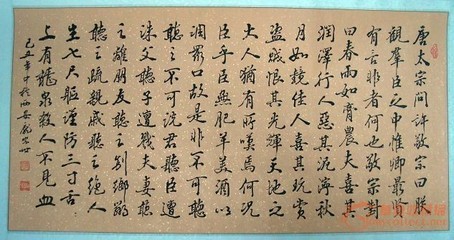 唐太宗问许敬宗曰朕
觀羣臣之中惟卿最賢
有言非者何也敬宗對
曰春雨如膏農夫喜其
潤澤行人惡其泥濘秋
月如鏡佳人喜其玩賞
盗賊恨其光輝天地之
大人猶有時嘆焉何况
臣乎臣無肥羊美酒以
调眾口故是非不可聽
聽之不可洗君聽臣遭
誅父聽子遭戮夫妻聽
之離朋友聽之别鄉鄰
聽之疏親戚聽之絕人
生七尺軀謹防三寸舌
上有龍泉殺人不見血
己丑年中秋西安